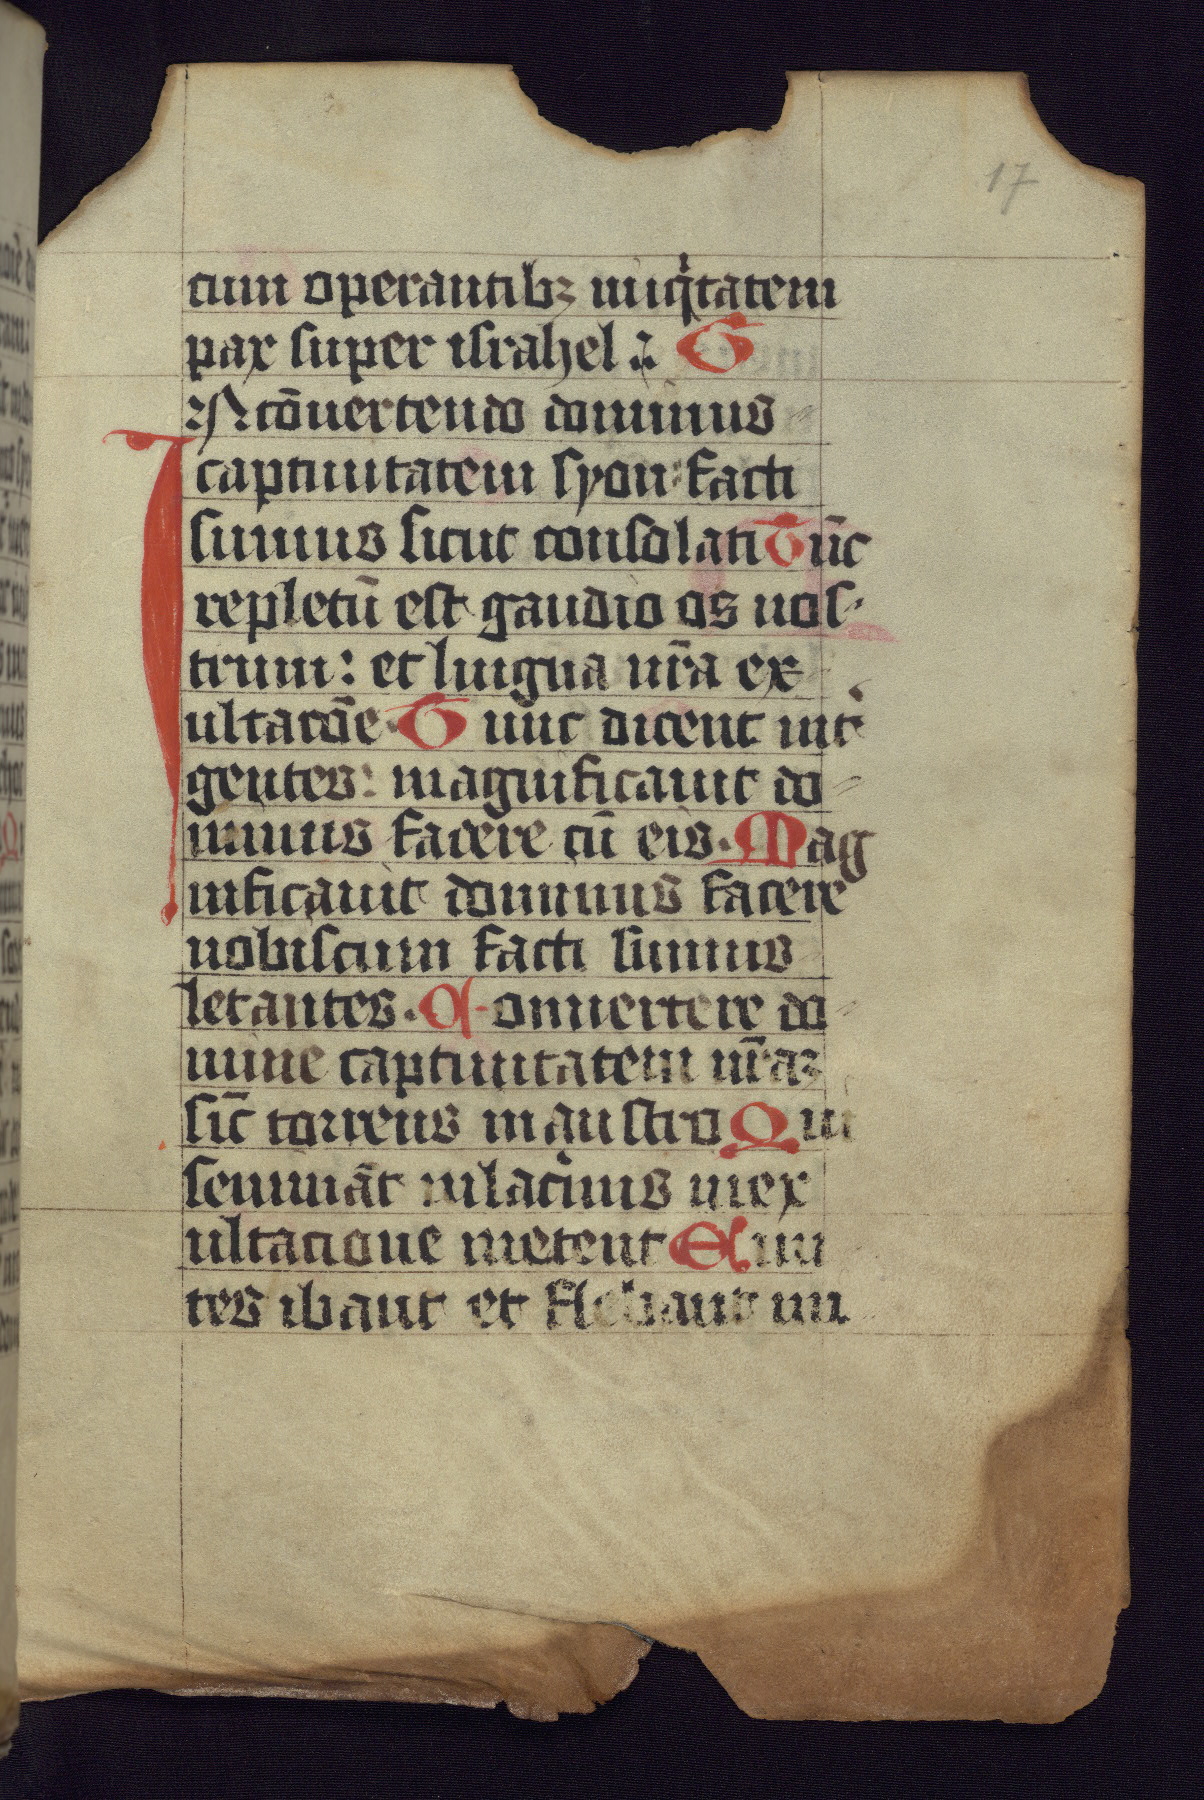 17
cum operantibꝫ iniqͥtatem
pax super israhel : G
IN cōuertendo dominus
captiuitatem syon : facti
sumus sicut consolati Tūc
repletū est gaudio os nos-
trum : et lingua nr̄a ex
ultacōe . Tunc dicent int̓
gentes : magnificauit do-
minus facere cū eis . Mag
nificauit dominus facere
nobiscum facti sumus
letantes . Conuertere do-
mine captiuitatem nr̄aꝫ
sic̄ torrens in austro Qui
semināt in lacͥmis in ex
ultacione metent Eun
tes ibant et flebant mi